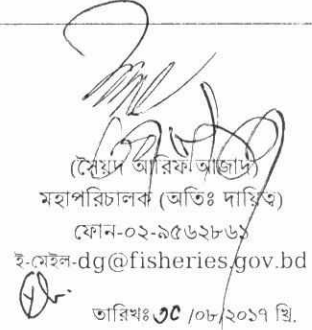 (সৈয়দ আরিফ আজাদ)
মহাপরিচালক (অতিঃ দায়িত্ব)
ফোন-০২-৯৫৬২৮৬১
ই-মেইল-dg@fisheries.gov.bd
তারিখঃ ৩০ /০৮/২০১৭ খ্রি.